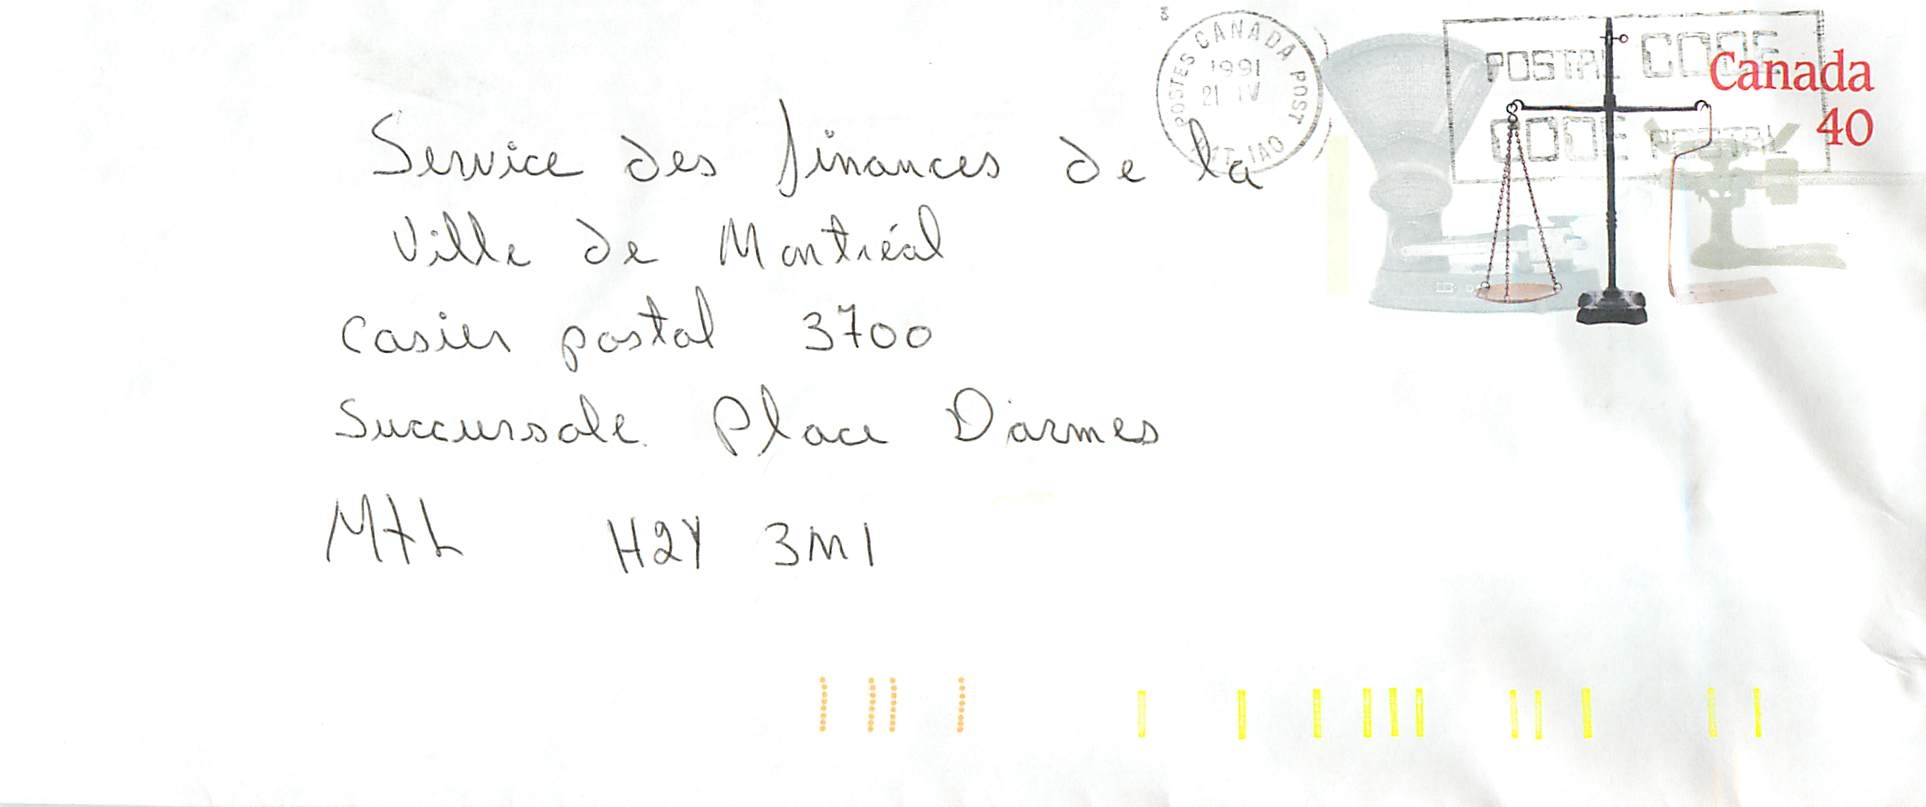 POSTES CANADA POST
1991
21 IV
POSTAL CODE
CODE POSTAL
Canada
40
Service des finances de la
Ville de Montréal
Casier postal 3700
Succursale Place D'armes
Mtl H2Y 3M1